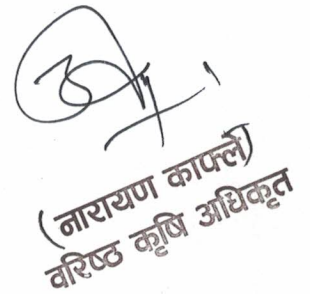 (नारायण काफ्ले)
वरिष्ठ कृषि अधिकृत